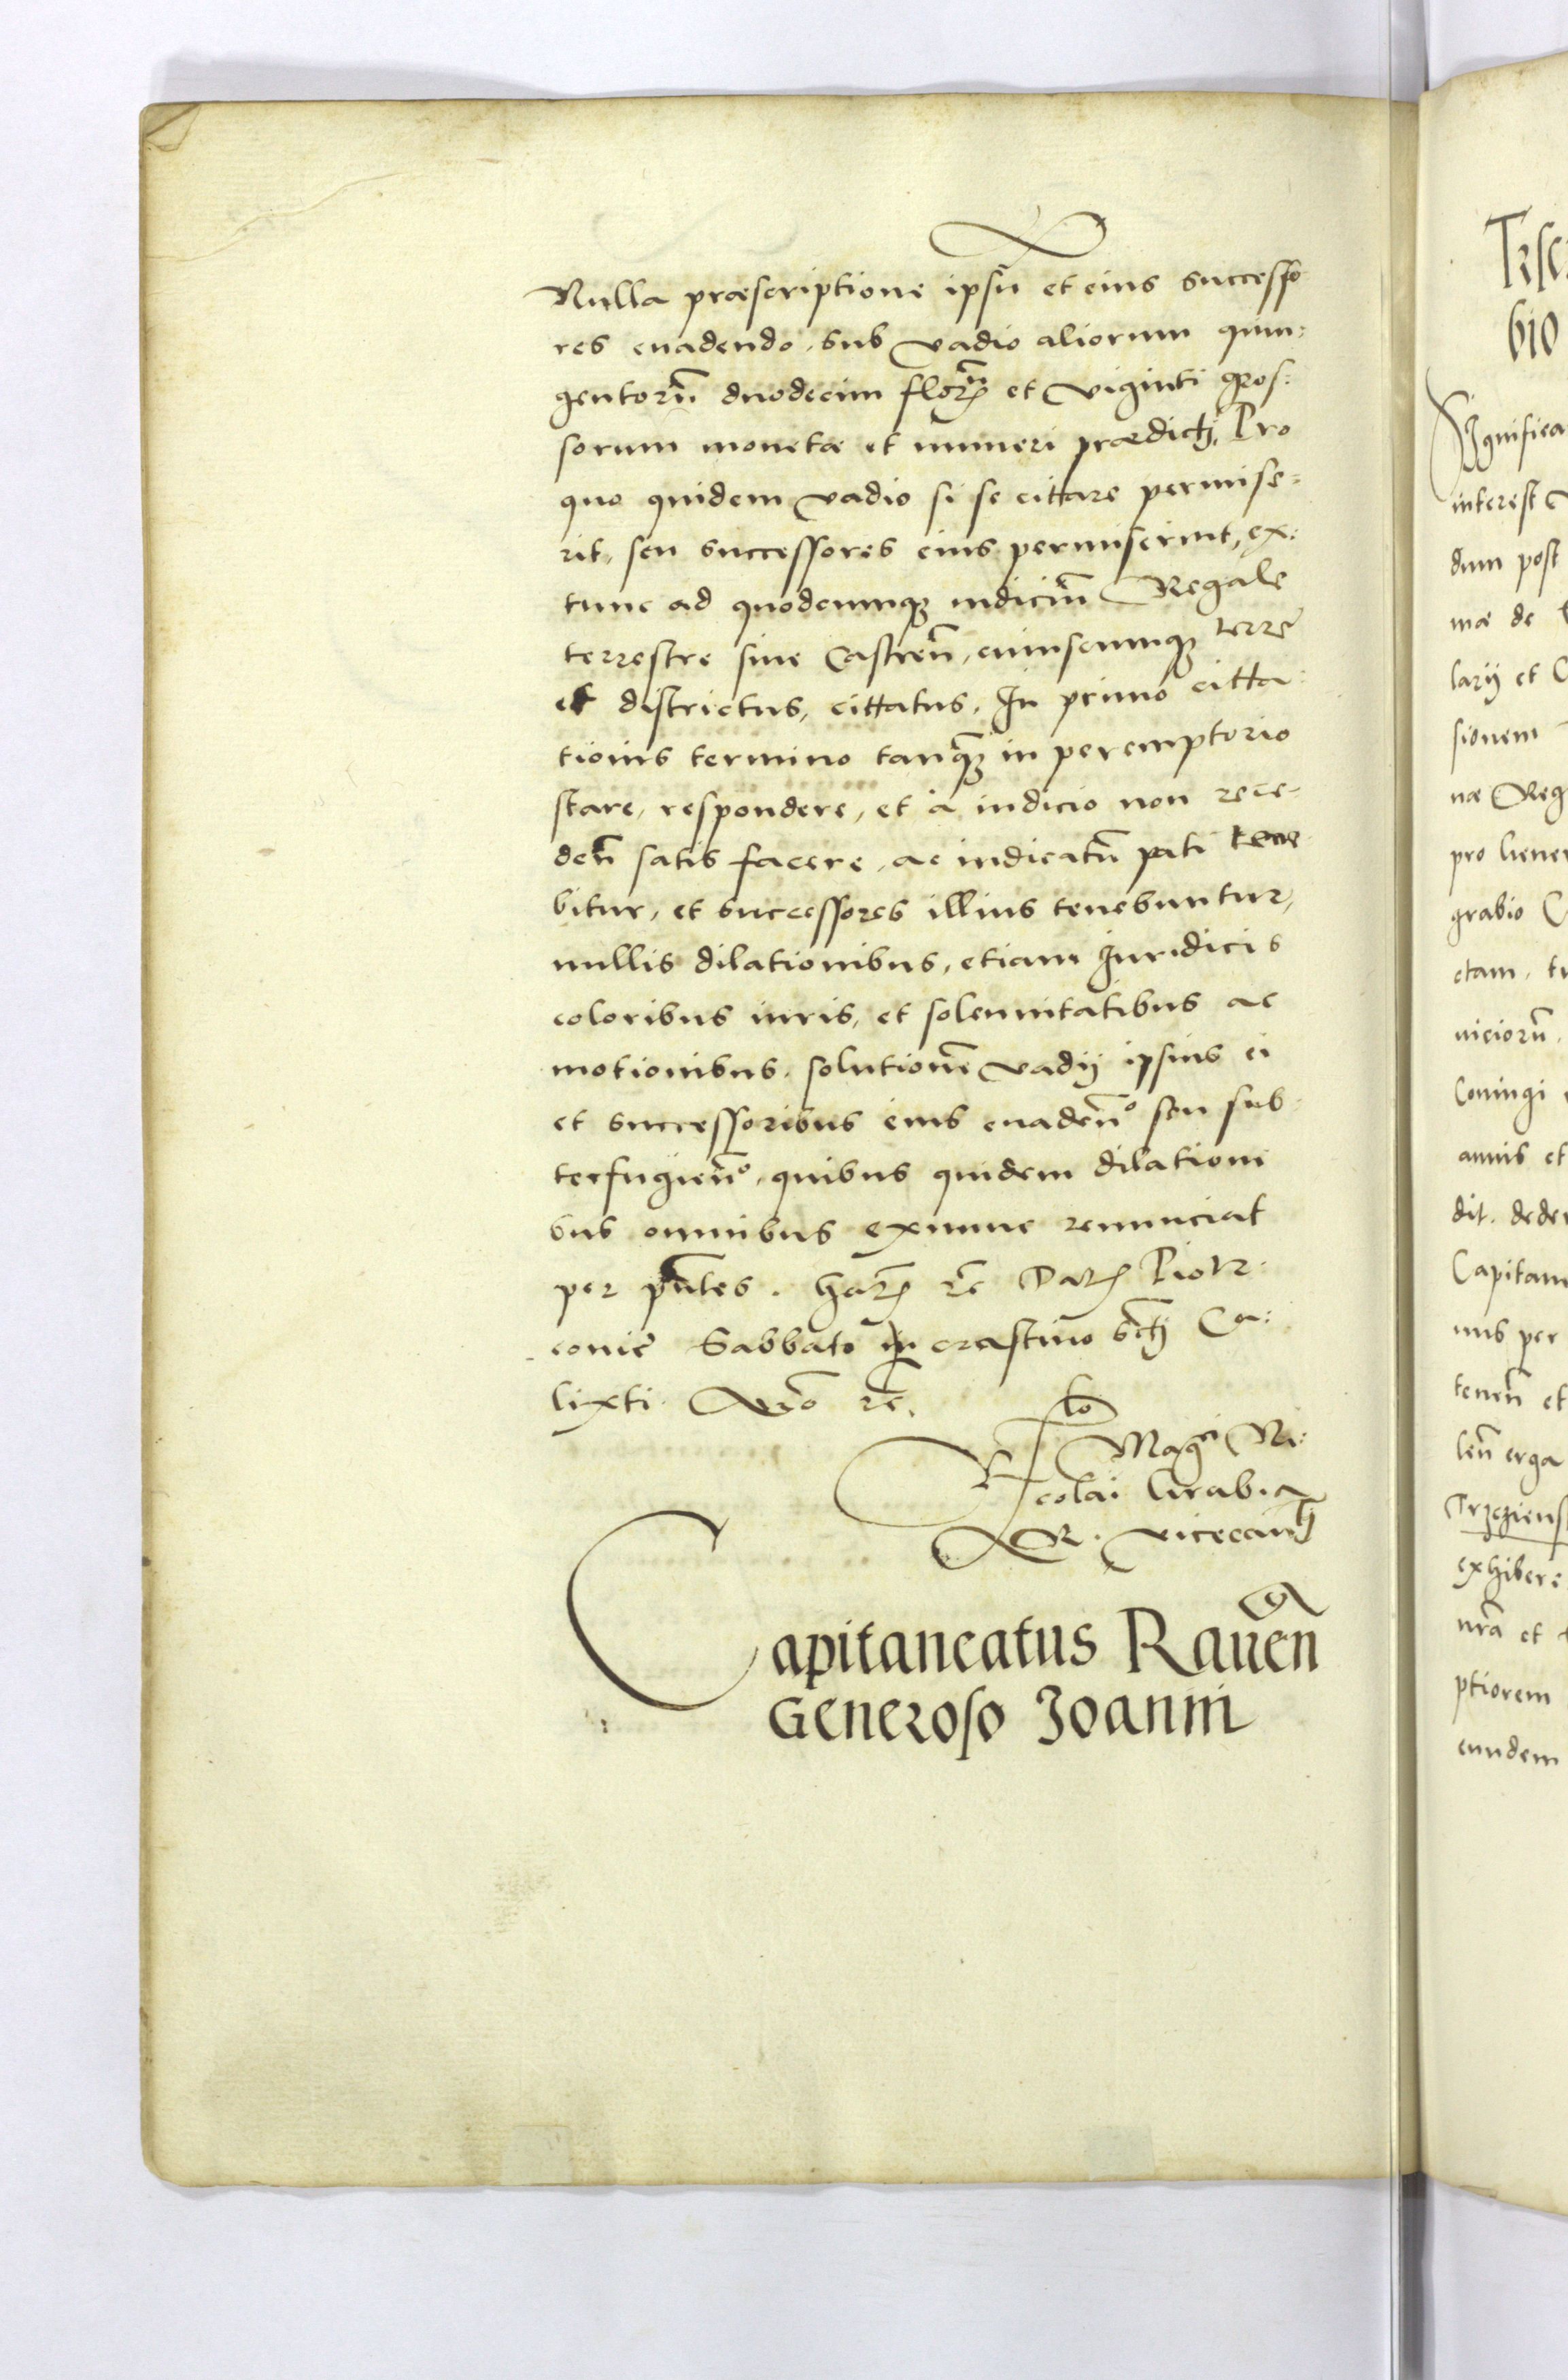 Nulla præscriptione ipsū et eius successo
res euadendo. sub vadio aliorum quin:
gentorū duodecim floꝝ et viginti gros:
sorum monetæ et numeri prædicti. Pro
quo quidem vadio si se cittare permise=
rit, seu successores eius permiserint, ex:
tunc ad quodcunqꝫ iudiciū Regale
terrestre siue Castreñ, cuiuscunqꝫ terræ
et districtus, cittatus. In primo citta:
tionis termino tanqꝫ in peremptorio
stare, respondere, et à iudicio non rece-
deñ satis facere. ac iudicatū pati tene
bitur, et successores illius tenebuntur,
nullis dilationibus, etiam Iuridicis
coloribus iuris, et solennitatibus ac
motionibus. solutionē vadij ipsius ei
et successoribus eius euadenᵒ seu sub
terfugienᵒ. quibus quidem dilationi
bus omnibus exnunc renunciat
per pñtes. Harꝝ rē Datꝝ Piotr:
conie Sabbato in crastino scti Ca:
lixti. Anno rē.
Rlo Magci Ni:
colai Grabia
R. vicecan
Capitaneatus Raueñ
Generoso Joanni
Trsc
bio
Significa
interest
dum post
mæ de
larij et C
sionem
næ Reg
pro gener
grabio C
etam. tu
uiciorū.
Coningi
annis et
dit. dede
Capitane
nus per
teneñ et
leñ erga
Trzciens
exhibere
nrā et
ptiorem
eundem